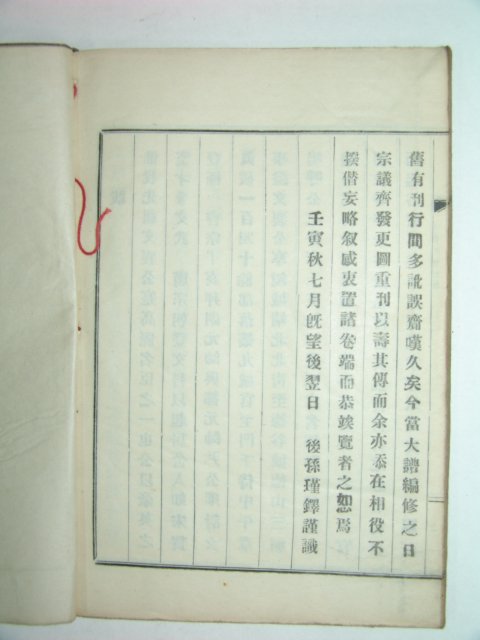 舊有刊行間多訛誤齎嘆久矣今當大譜編修之日
宗議齊發更圖重刊以壽其傳而余亦忝在相役不
揆僭妄略叙感衷置諸卷端而恭竢覽者之恕焉
壬寅秋七月旣望後翌日 後孫瑾鐸謹識